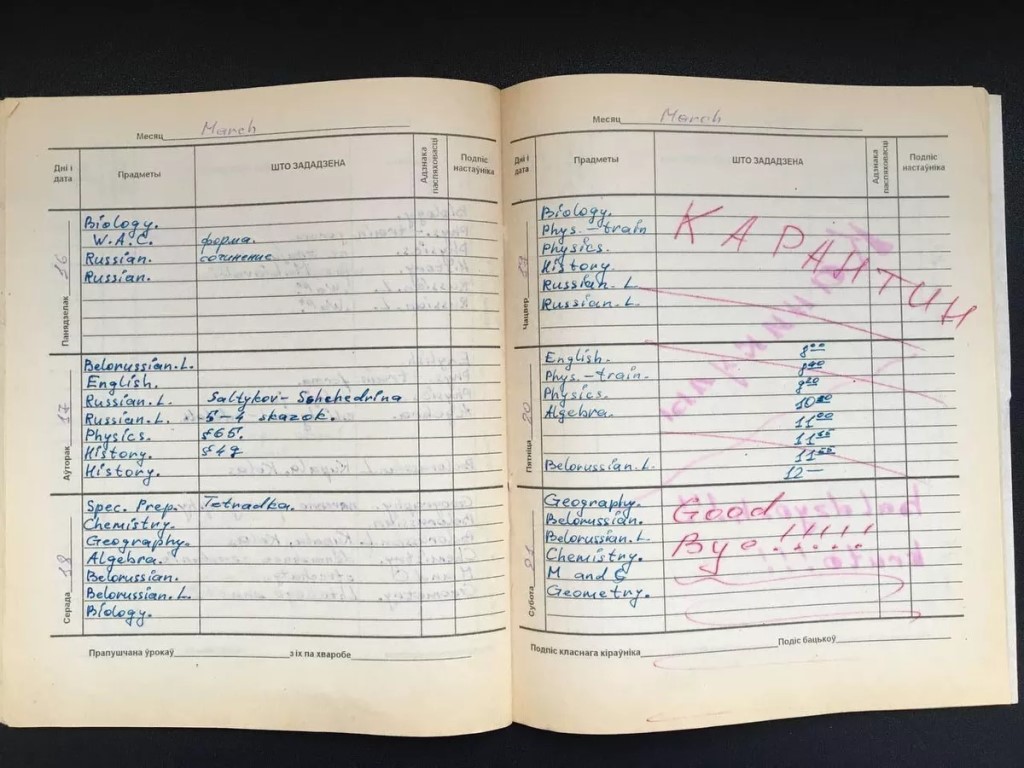 Месяц March
Дні і дата
Прадметы
ШТО ЗАДАДЗЕНА
Адзнака паспяховасці
Подпіс настаўніка
Панядзелак 16
Biology.
W.A.C. форма.
Russian. сочинение
Russian.
Аўторак 17
Belorussian.L.
English.
Russian.L. Saltykov-Schehedrina
Russian.L. 5-4 skazok.
Physics. §65.
History. §49
History.
Серада 18
Spec. Prep. Tetradka.
Chemistry.
Geography.
Algebra.
Belorussian.
Belorussian.L.
Biology.
Прапушчана ўрокаў з іх па хваробе
Месяц March
Дні і дата
Прадметы
ШТО ЗАДАДЗЕНА
Адзнака паспяховасці
Подпіс настаўніка
Чацвер
Biology.
Phys.-train
Physics.
History.
Russian.L.
Russian.L.
КАРАНТИН
Пятніца 20
English. 8⁰⁰
Phys.-train.
Physics.
Algebra.
11⁰⁰
Belorussian.L.
12-
Субота 21
Geography.
Belorussian.
Belorussian.L.
Chemistry.
M and C
Geometry.
Good
Bye!!!!!!
Подпіс класнага кіраўніка Подіс бацькоў